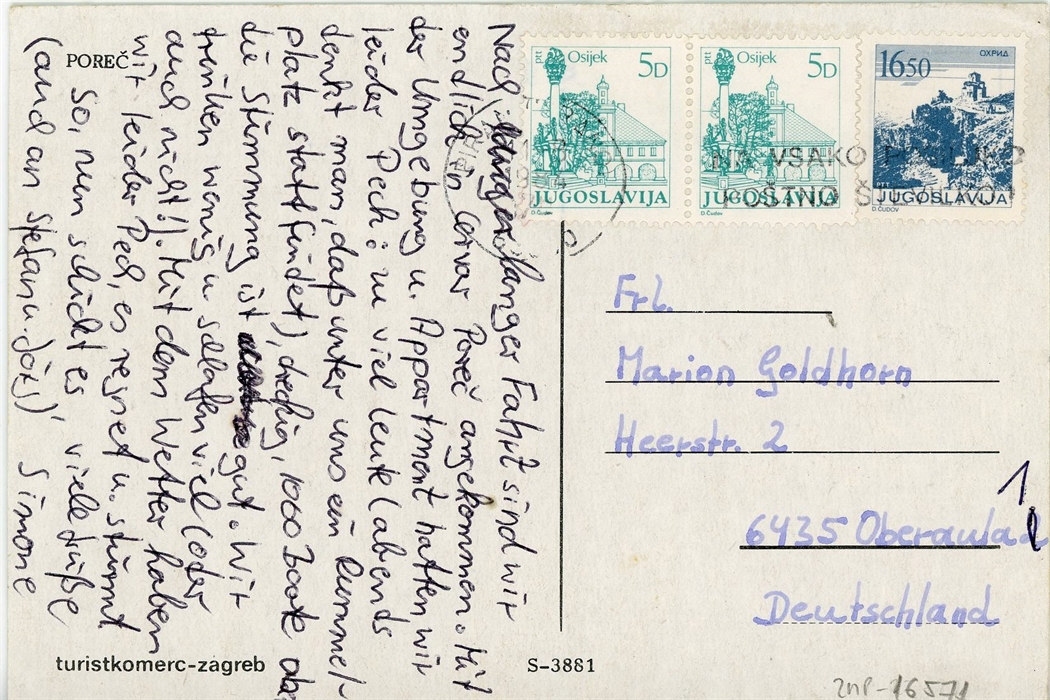 POREČ
Nach langer Fahrt sind wir
endlich in Cervar Poreč angekommen. Mit
der Umgebung u. Appartment hatten wir
leider Pech: zu viel Leute (abends
denkt man, daß unter uns ein Rummel-
platz stattfindet), dreckig, 1000 Boote aber
die Stimmung ist gut. Wir
trinken wenig u. schlafen viel (oder
auch nicht!). Mit dem Wetter haben
wir leider Pech, es regnet u. stürmt
So, nun schickt es, viele Grüße
(auch an Stefan u. Jörg) Simone
turistkomerc-zagreb
S-3881
PTT
Osijek
5D
JUGOSLAVIJA
D.Čudov
PTT
Osijek
5D
JUGOSLAVIJA
D.Čudov
1650
ОХРИД
PTT
JUGOSLAVIJA
D.ČUDOV
NA VSAKO
POŠTNO
Frl.
Marion Goldhorn
Heerstr. 2
6435 Oberaula 2
1
Deutschland